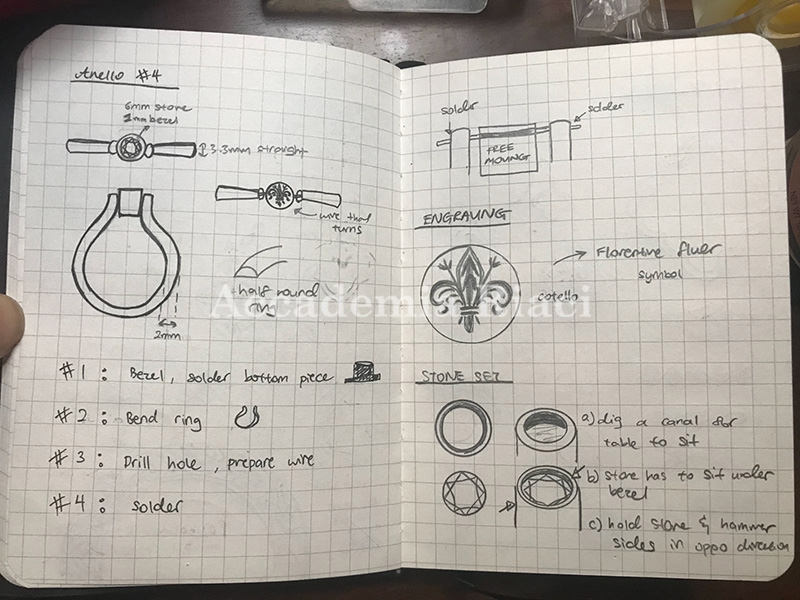 Anello #4
6mm stone
1mm bezel
3.3mm straight
wire that
turns
half round
ring
2mm
#1 : Bezel, solder bottom piece
#2 : Bend ring
#3 : Drill hole, prepare wire
#4 : solder
solder
solder
FREE
MOVING
ENGRAVING
Florentine fluer
symbol
cotello
STONE SET
a) dig a canal for
table to sit
b) stone has to sit under
bezel
c) hold stone & hammer
sides in oppo direction
Accademia Riaci